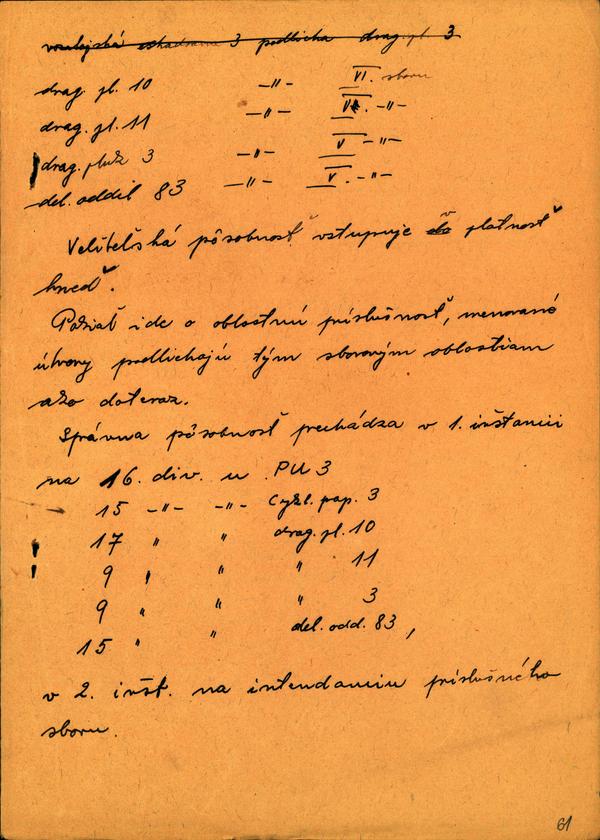 vozatajská eskadrona 3 podlieha drag. pl. 3
drag. pl. 10 —"— VI. sboru
drag. pl. 11 —"— VI. —"—
drag. pluk 3 —"— V —"—
del. oddil 83 —"— V. —"—
Veliteľská pôsobnosť vstupuje do platnosť
hneď.
Pokiaľ ide o oblastnú príslušnosť, menované
útvary podliehajú tým sborovým oblastiam
ako doteraz.
Správna pôsobnosť prechádza v 1. inštancii
na 16. div. u PU 3
15 —"— —"— Cykl. pap. 3
17 " " drag. pl. 10
9 " " " 11
9 " " " 3
15 " " del. odd. 83,
v 2. inšt. na intendanciu príslušného
sboru.
61